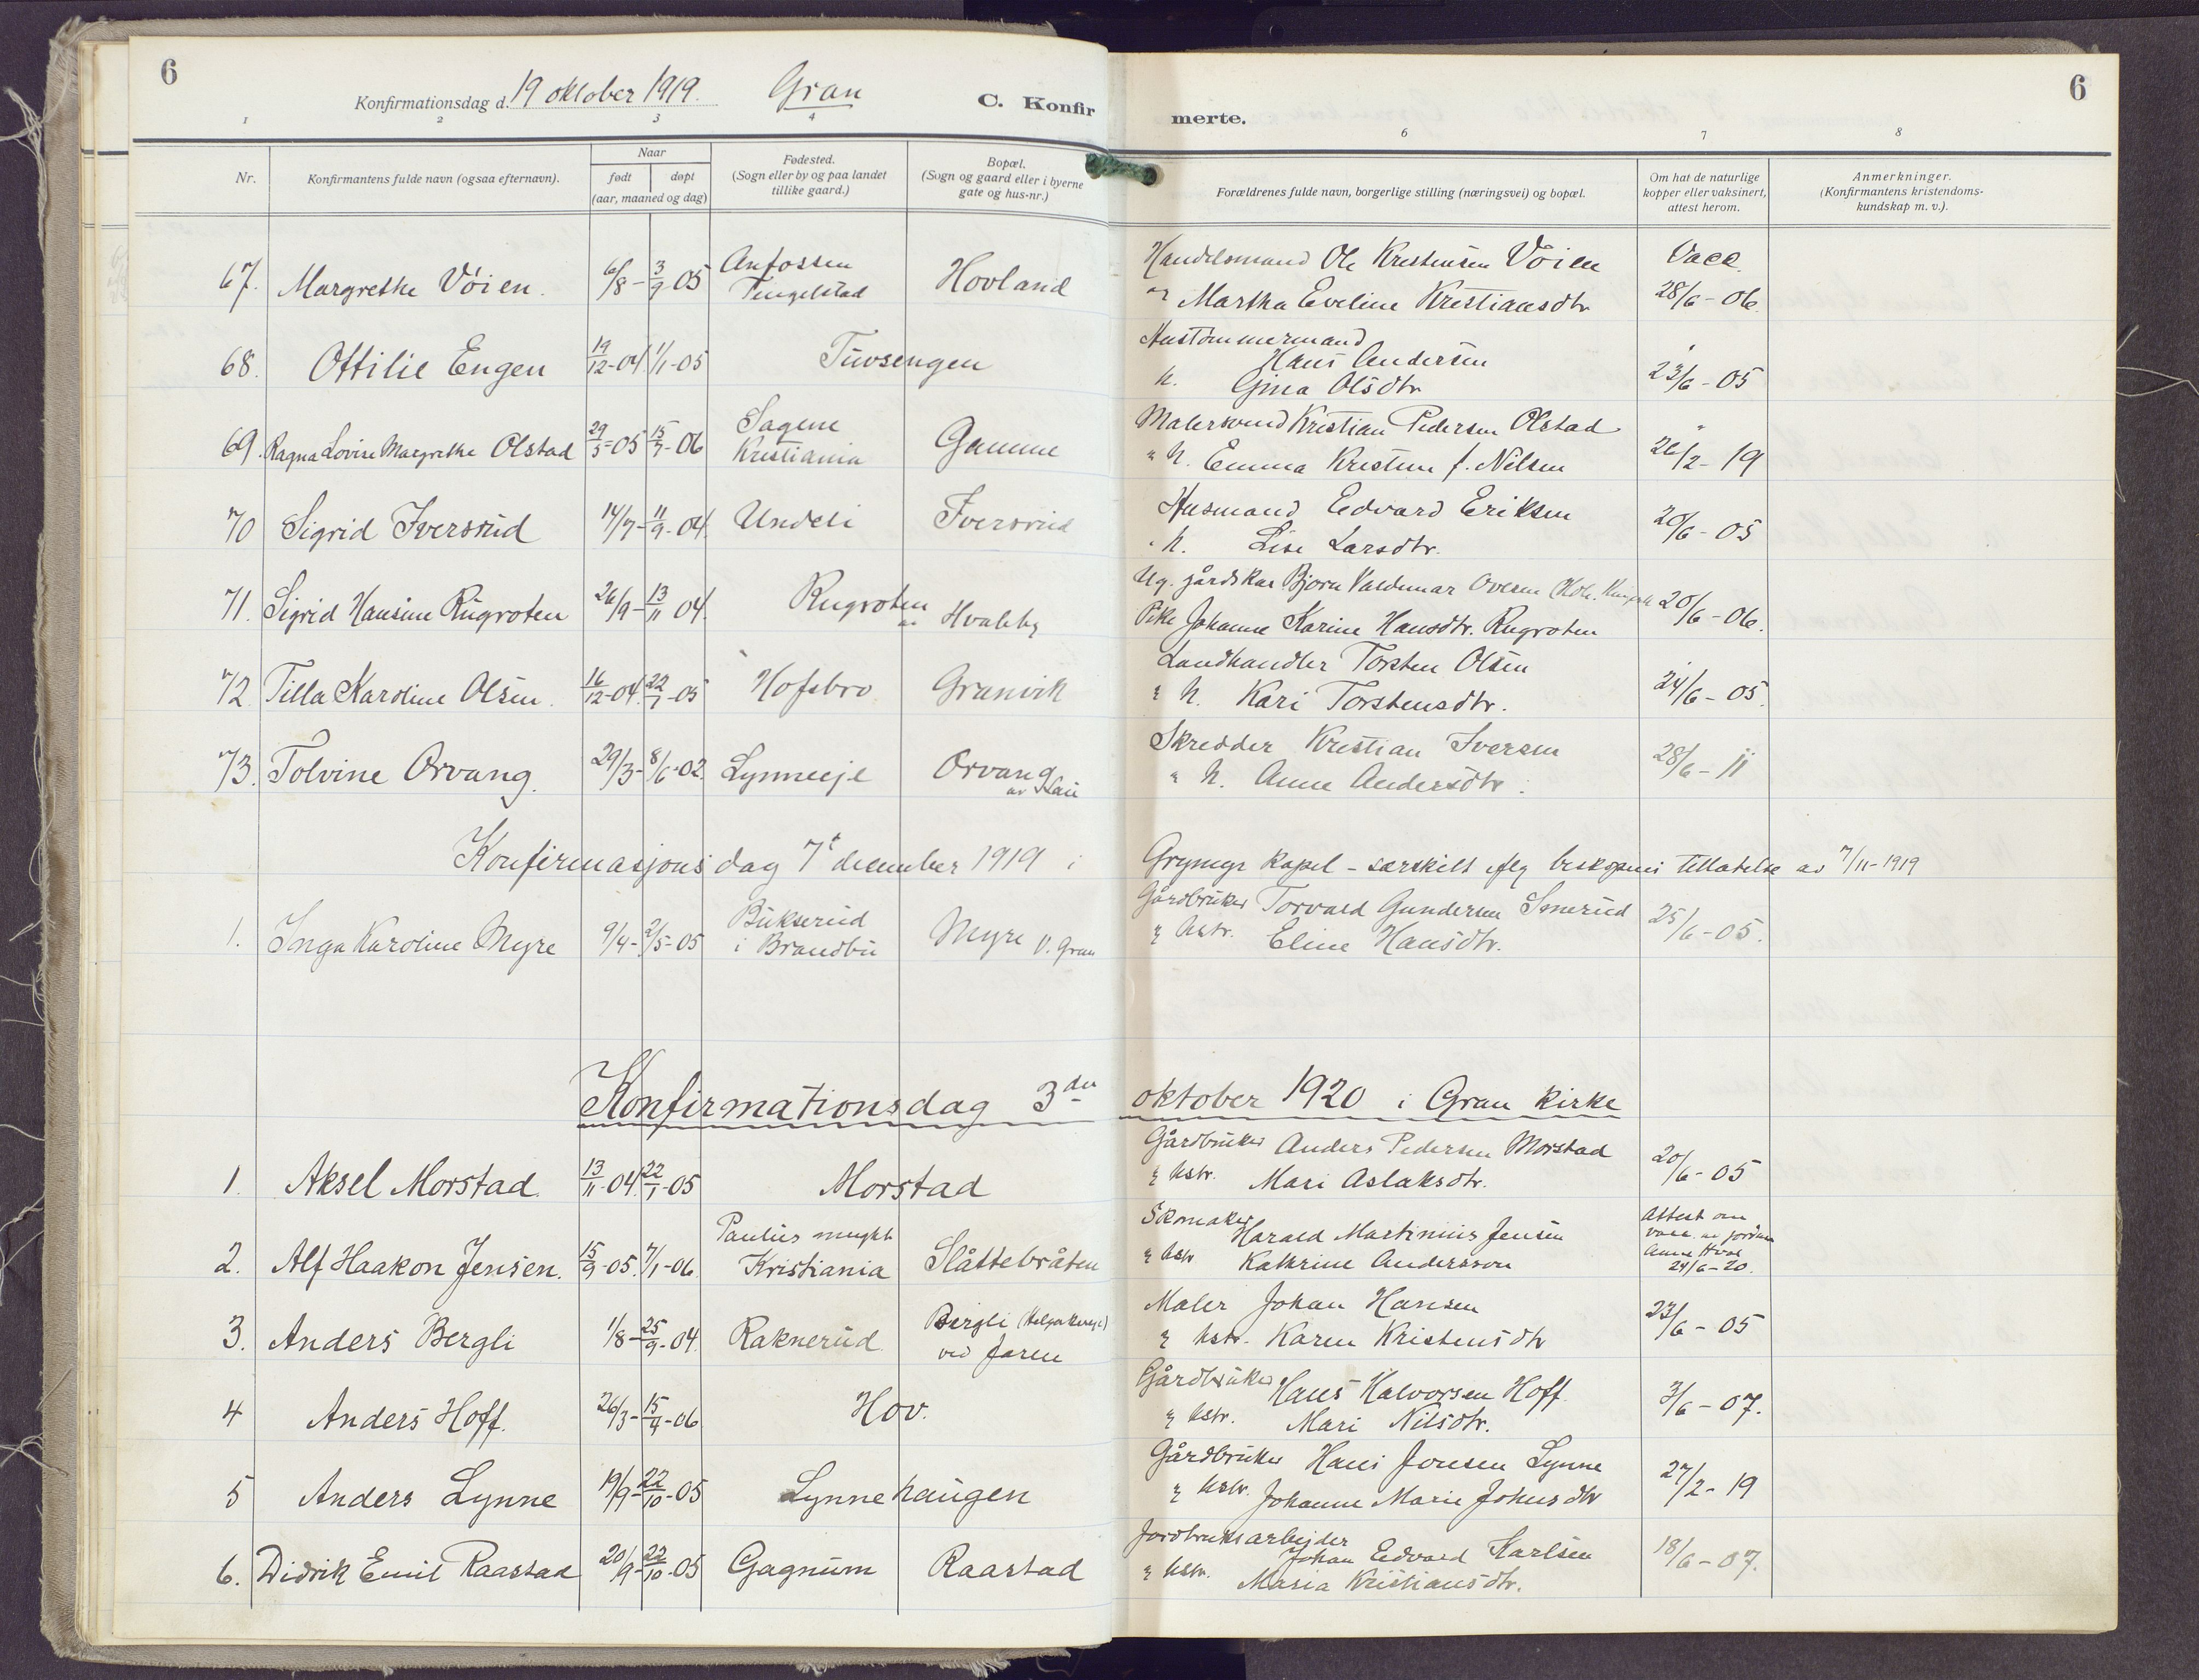 6
Konfirmationsdag d. 19 oktober 1919. Gran C. Konfirmerte. 6
1 2 3 4 6 7 8
Nr.
Konfirmantens fulde navn (ogsaa efternavn).
Naar
født døpt
(aar, maaned og dag)
Fødested.
(Sogn eller by og paa landet
tillike gaard.)
Bopæl.
(Sogn og gaard eller i byerne
gate og hus-nr.)
Forældrenes fulde navn, borgerlige stilling (næringsvei) og bopæl.
Om hat de naturlige
kopper eller vaksinert,
attest herom.
Anmerkninger.
(Konfirmantens kristendoms-
kundskap m. v.).
67. Margrethe Vöien. 6/8 - 3/9 05
Tingelstad Hovland
Handelsmand Ole Kristensen Vöien
Martha Eveline Kristiansdtr
Vacc.
28/6 - 06.
68. Ottilie Engen 19/12-04. 1/1-05 Tuvsengen
Hustömmermand
Hans Andersen
h. Gina Olsdtr
23/6 - 05
69. Ragna Lovise Margrethe Olstad 29/5-05 15/7-06
Sagene
Kristiania
Gamme
Malersvend Kristian Pedersen Olstad
" h. Emma Kristine f. Nilsen
" 26/2 - 19
70 Sigrid Iversrud 14/7 - 11/9 - 04. Undeli Iversrud
Husmand Edvard Eriksen
" h. Lise Larsdtr.
20/6 - 05
71. Sigrid Hansine Rugroten 26/9 - 13/11 04. Rugroten Hvaleby
Ug. gårdskar Bjorn Valdemar Ovesen
Pike Johanne Karine Hansdtr. Rugroten
20/6 - 06.
72 Tilla Karoline Olsen. 16/12-04. 22/1-05 Hofsbro Granvik
Landhandler Torsten Olsen
& h. Kari Torstensdtr.
24/6 - 05.
73. Tolvine Orvang. 29/3 - 8/6-02. Lynneeje Orvang
Skredder Kristian Iversen
" h. Anne Andersdtr.
28/6 - 11
Konfirmasjons dag 7' december 1919 i Grymyr kapel - særskilt ifлg biskopens tillatelse av 7/11 - 1919
1. Inga Karoline Myre 9/4 - 2/5 - 05
Bukserud
i Brandbu
Myre V. Gran
Gårdbruker Torvald Gundersen Smerud
& hstr. Eline Hansdtr.
25/6 - 05.
Konfirmationsdag 3den oktober 1920 i Gran kirke
1. Aksel Morstad. 13/11-04. 22/1-05 Morstad
Gårdbruker Anders Pedersen Morstad
& hstr. Mari Aslaksdtr.
20/6 - 05
2. Alf Haakon Jensen. 15/9-05. 7/1-06.
Paulus menght
Kristiania
Slåttebråten
Skomaker
Harald Martinius Jensen
& hstr Kathrine Andersson
Attest om
vacc. av jordm
Anne Hval
24/6 - 20.
3. Anders Bergli 1/8 - 25/9 - 04. Raknerud
Bergli
ved Jaren
Maler Johan Hansen
& hstr. Karen Kristensdtr
23/6 - 05
4 Anders Hoff. 26/3 - 15/4 - 06 Hov.
Gårdbruker Hans Halvorsen Hoff
& hstr. Mari Nilsdtr.
3/6 - 07.
5 Anders Lynne 19/9 - 22/10 - 05 Lynnehaugen
Gårdbruker Hans Jonsen Lynne
& hstr. Johanne Marie Johnsdtr
27/2 - 19
6. Didrik Emil Raastad 20/9 - 22/10 - 05 Gagnum Raastad
Jordbruksarbejder
Johan Edvard Karlsen
& hstr. Maria Kristiansdtr.
18/6 - 07.